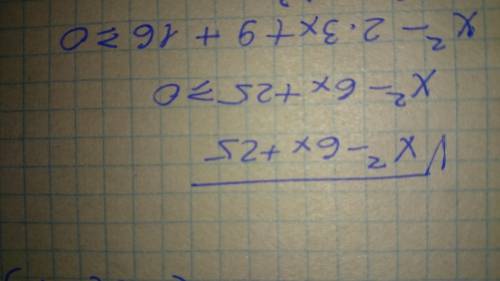 √x² - 6x + 25
x² - 6x + 25 ≥ 0
x² - 2·3x + 9 + 16 ≥ 0